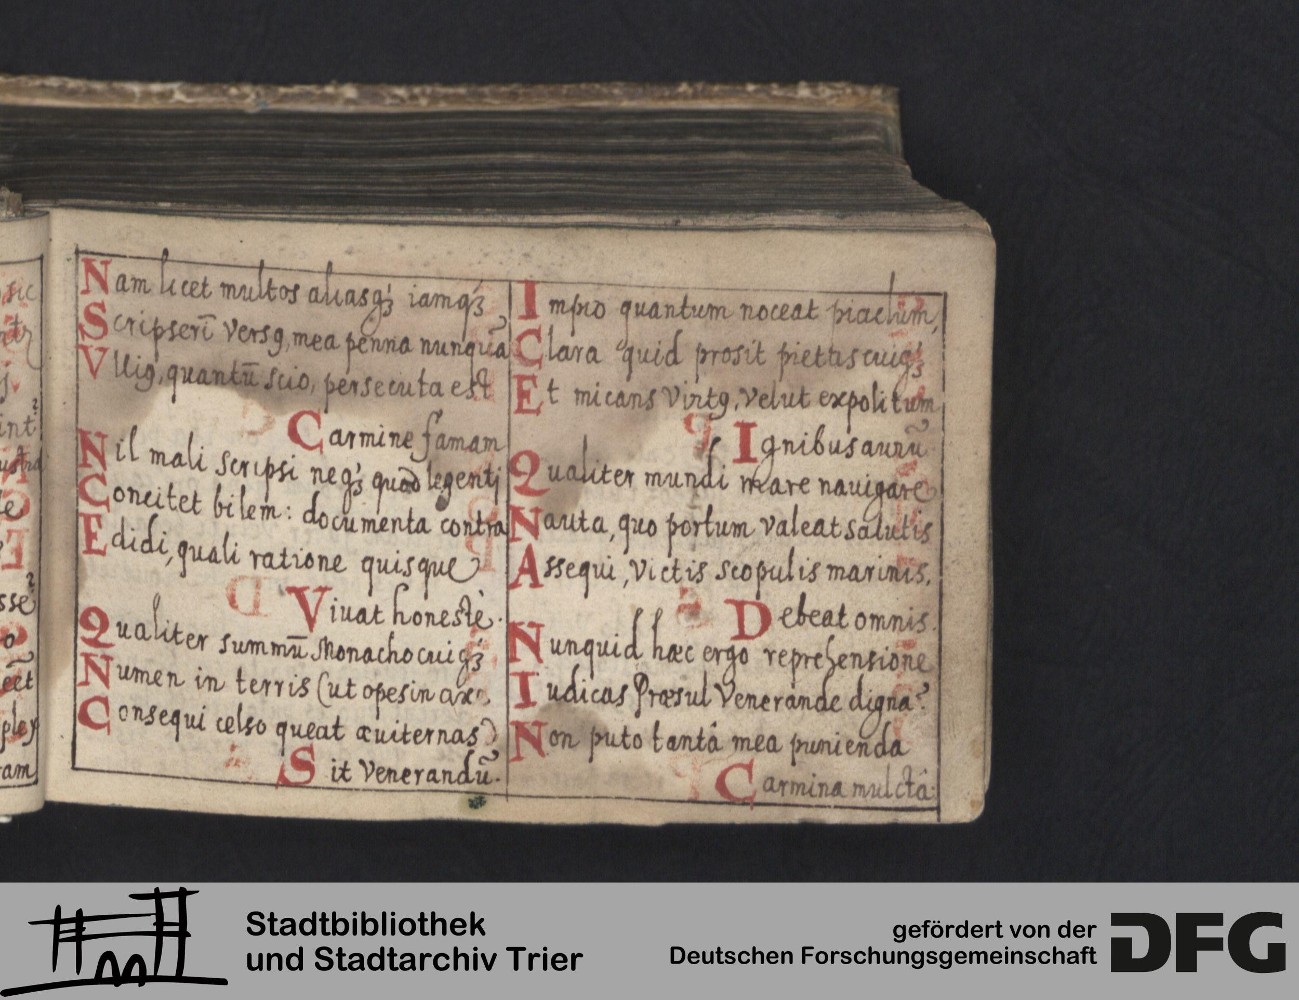 Nam licet multos aliasq₃ iamq₃
Scripseri᷉ Versꝯ, mea penna nunqua᷉
Vlliꝯ, quantu᷉ scio, persecuta est
Carmine famam
Nil mali scripsi neq₃ quod legenti
Concitet bilem: documenta contra
Edidi, quali ratione quisque
Viuat honestè.
Qualiter summu᷉ Monacho cuiq₃
Numen in terris (ut opes in
Consequi celso queat æuiternas)
Sit Venerandu᷉.
Impio quantum noceat piaclum,
Clara quid prosit pietas cuiq₃
Et micans Virtꝯ, velut expolitum
Ignibus auru᷉
Qualiter mundi mare nauigare
Nauta, quo portum valeat salutis
Assequi, victis scopulis marinis,
Debeat omnis.
Nunquid hæc ergo reprehensione
Iudicas Præsul Venerande digna?
Non puto tantâ mea punienda
Carmina mulctâ.
Stadtbibliothek
und Stadtarchiv Trier
gefördert von der
Deutschen Forschungsgemeinschaft
DFG